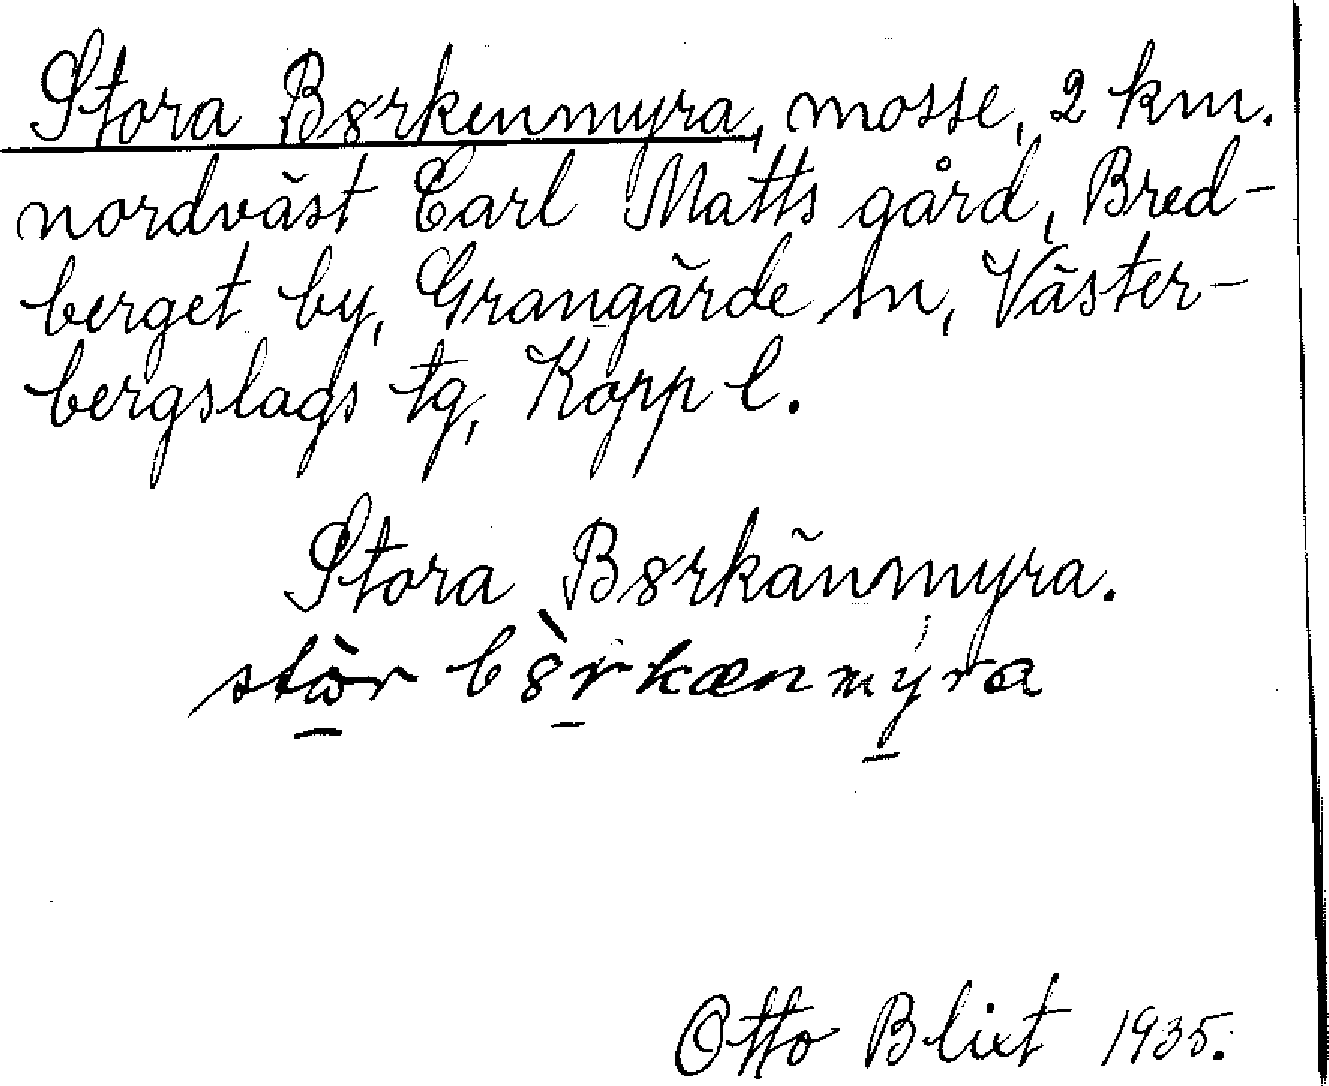 Stora B8rkenmyra, mosse, 2 km.
nordväst Earl Matts gård, Bred-
berget by, Grangärde sn, Väster-
bergslags tg, Kopp l.
Stora B8rkänmyra.
stòr b8̀rkænmyra
Otto Blixt 1935.